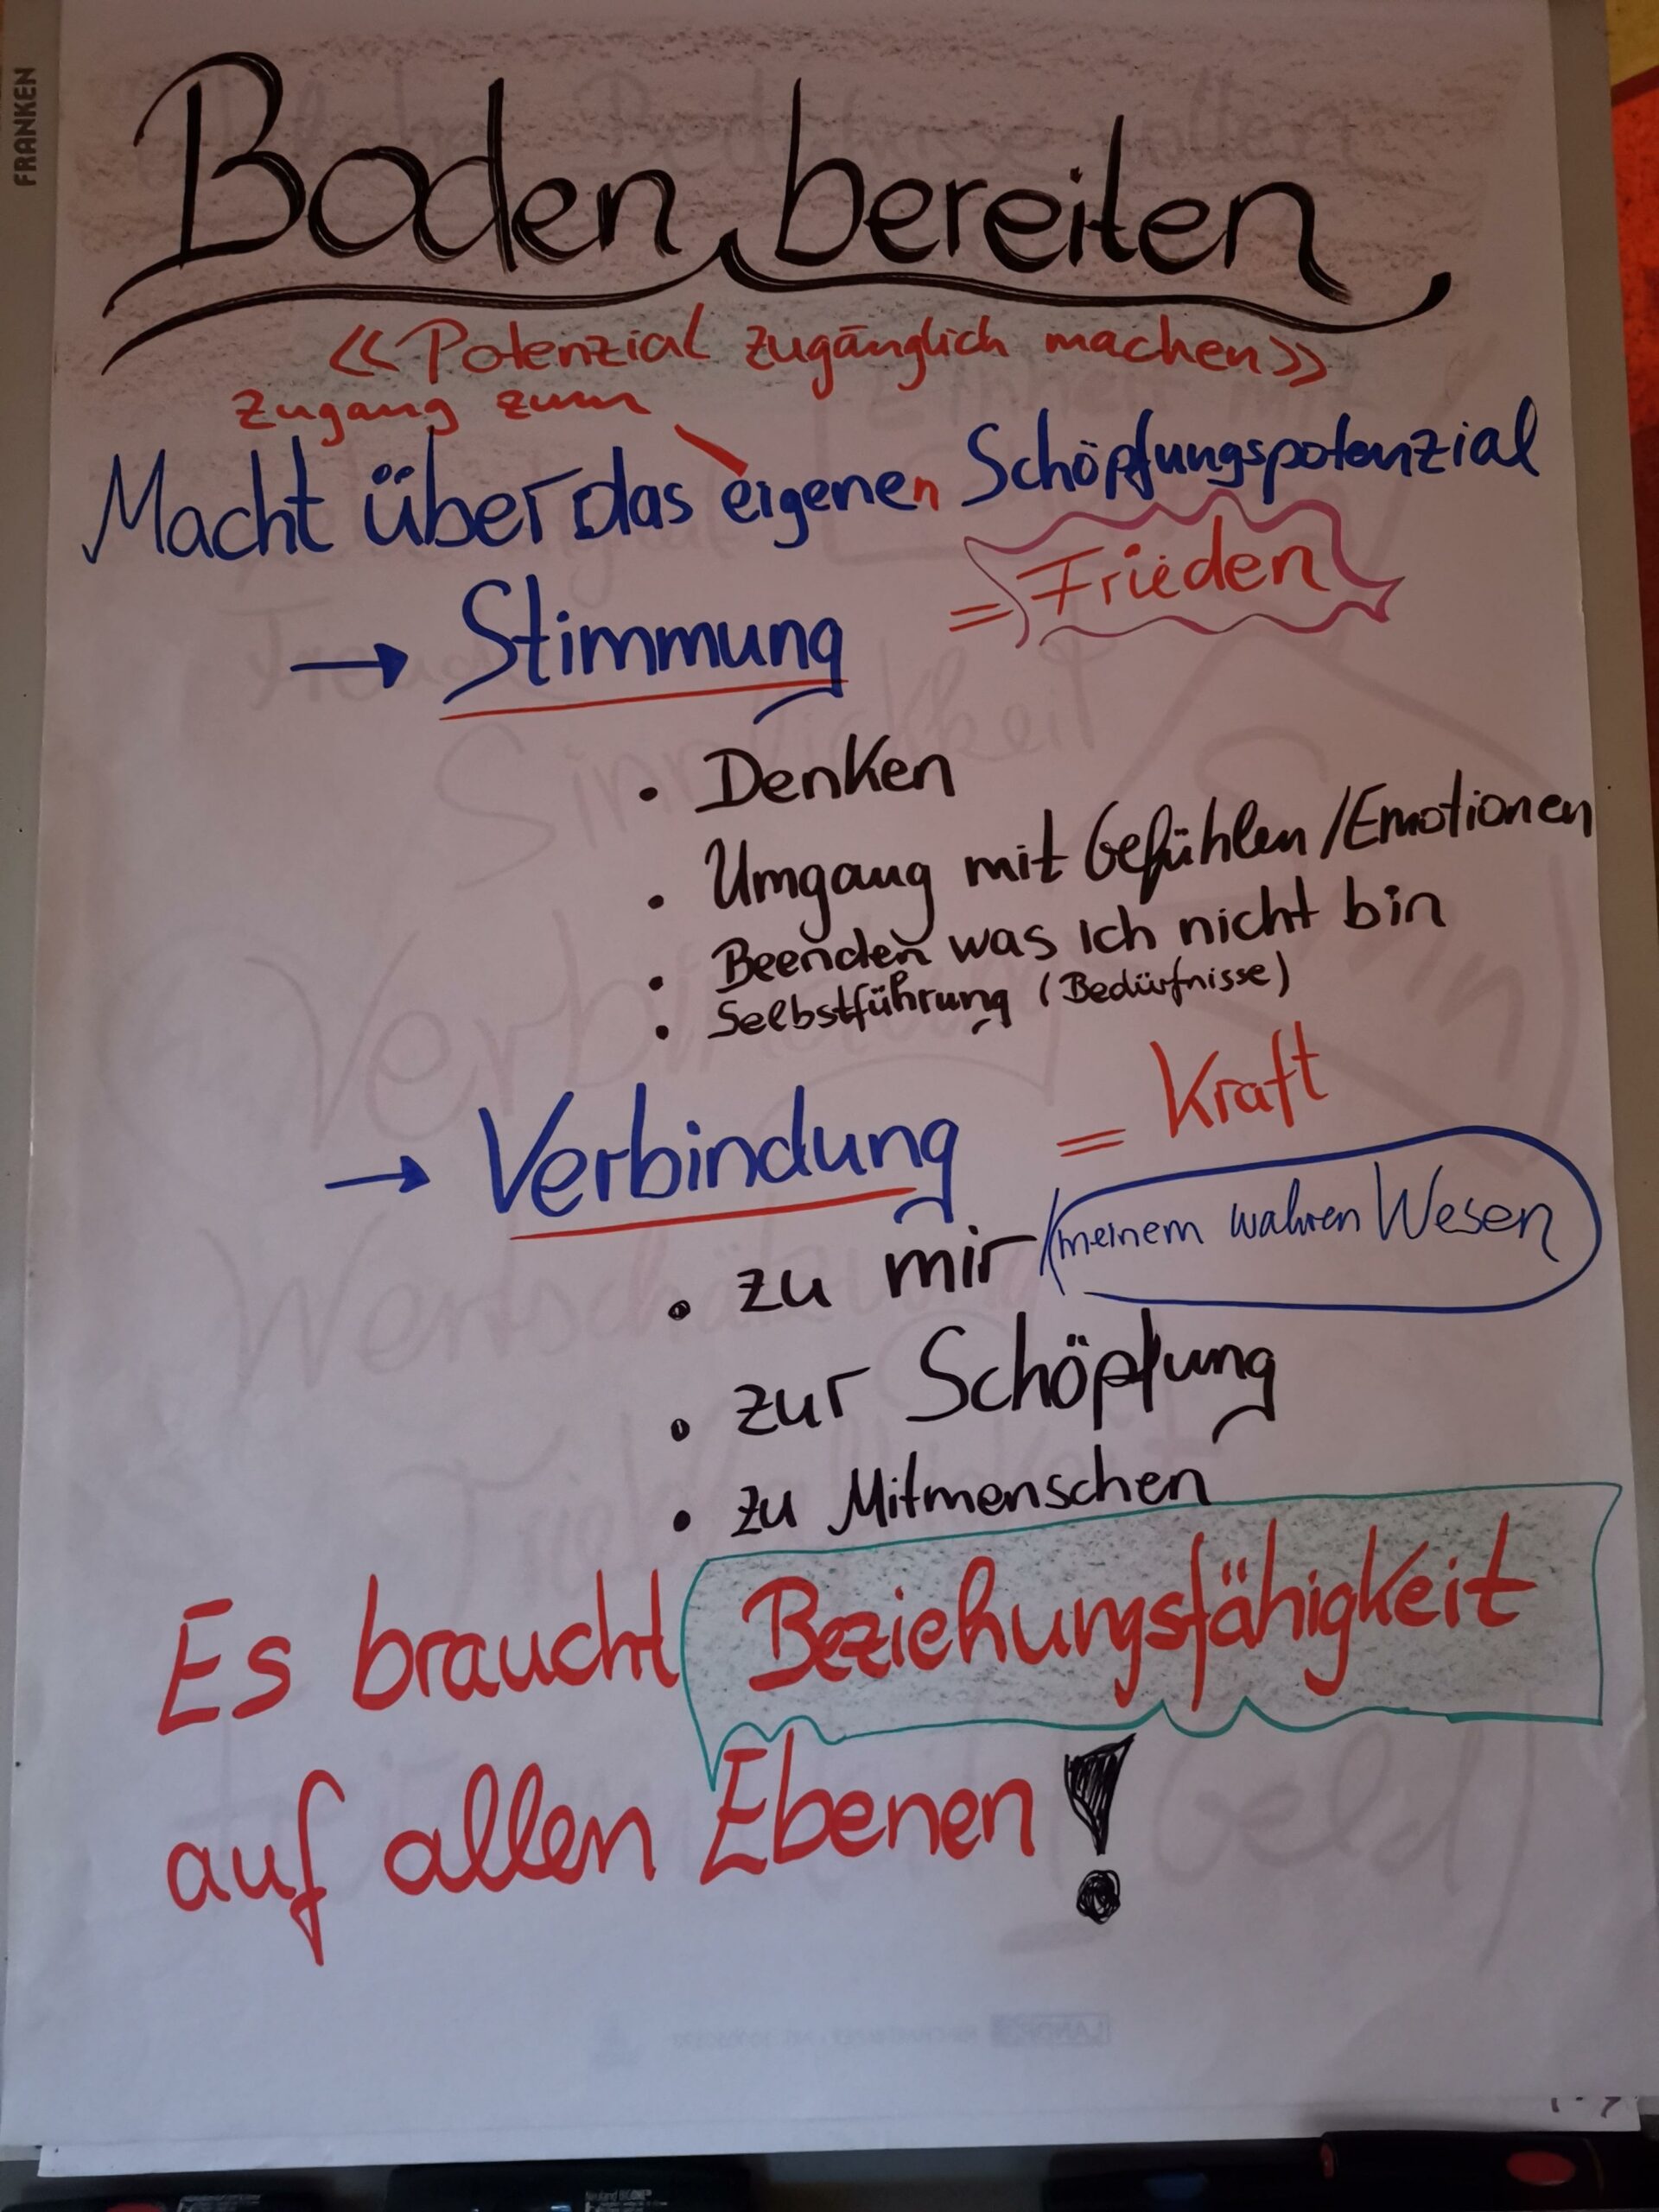 FRANKEN
Boden bereiten
«Potenzial zugänglich machen»
Zugang zum
Macht über das eigenen Schöpfungspotenzial
→ Stimmung = Frieden
• Denken
• Umgang mit Gefühlen/Emotionen
• Beenden was ich nicht bin
• Selbstführung (Bedürfnisse)
→ Verbindung = Kraft
• zu mir (meinem wahren Wesen
• zur Schöpfung
• zu Mitmenschen
Es braucht Beziehungsfähigkeit
auf allen Ebenen!
Neuland